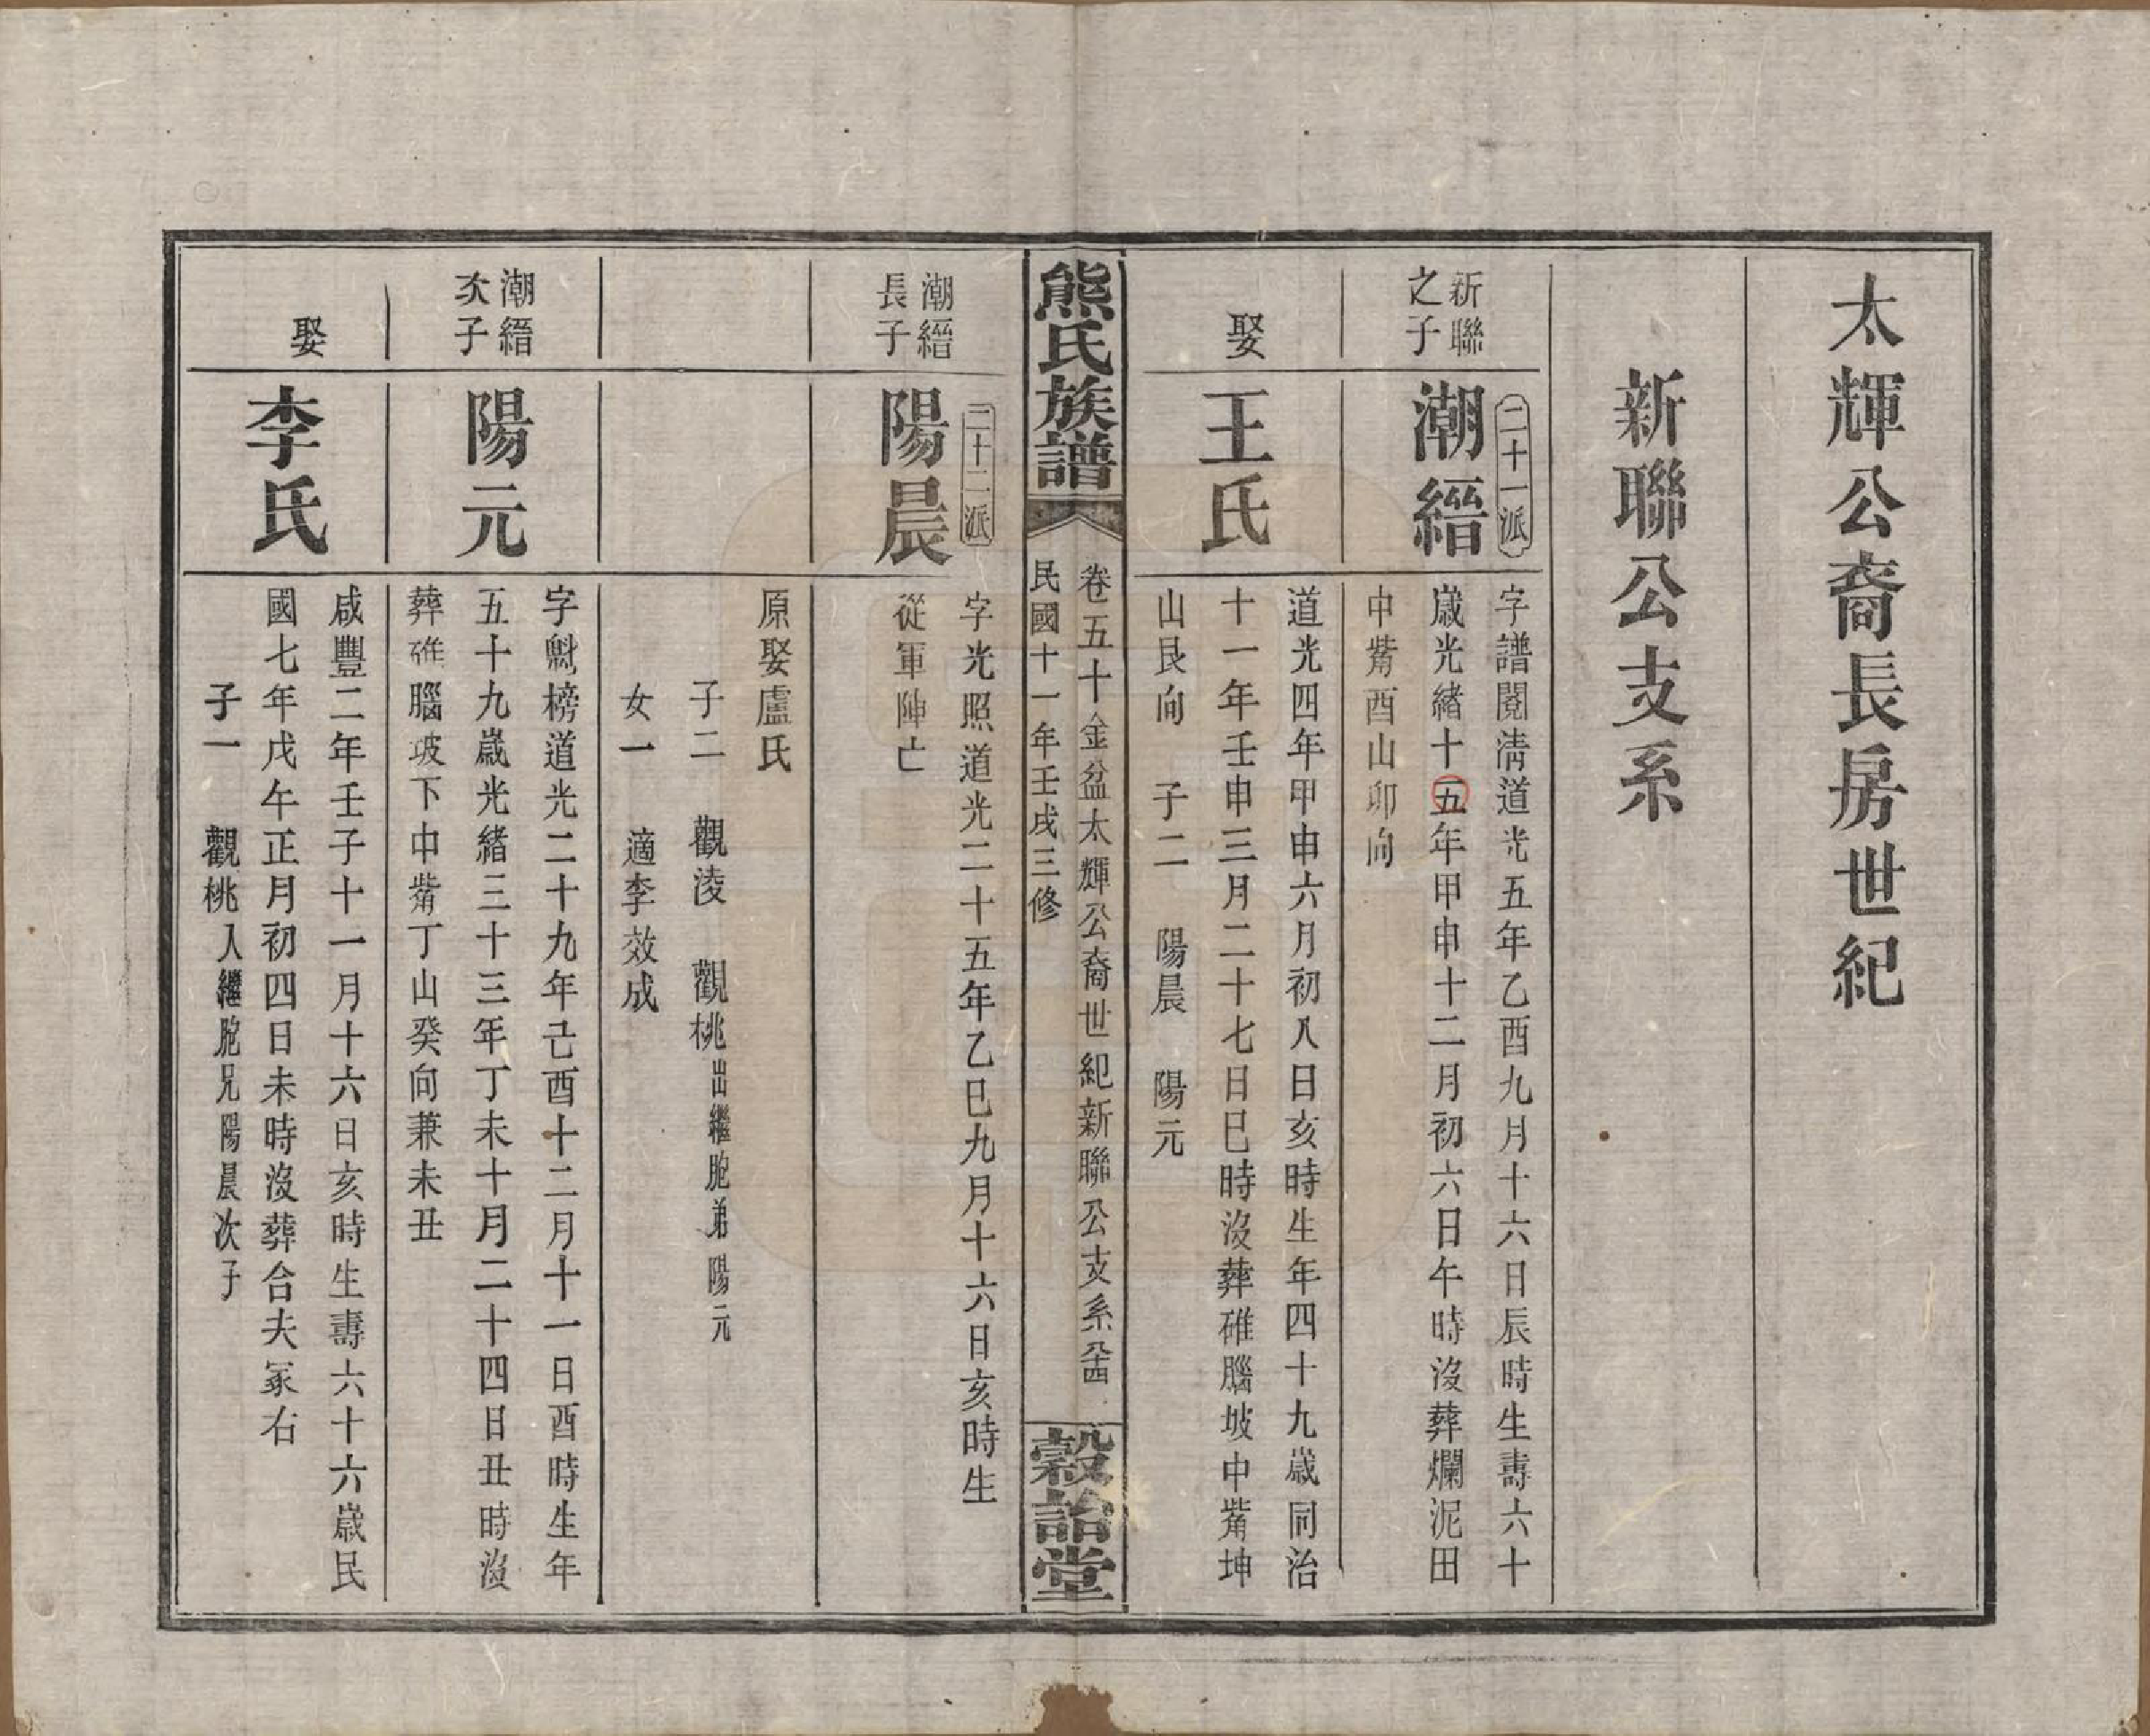 太輝公裔長房世紀
新聯公支系
新聯
之子
二十一派
潮縉
字譜閱清道光五年乙酉九月十六日辰時生壽六十
歲光緒十五年甲申十二月初六日午時沒葬爛泥田
中觜酉山卯向
娶
王氏
道光四年甲申六月初八日亥時生年四十九歲同治
十一年壬申三月二十七日巳時沒葬碓腦坡中觜坤
山艮向 子二 陽晨 陽元
熊氏族譜
卷五十金盆太輝公裔世紀新聯公支系
民國十一年壬戌三修
穀詒堂
潮縉
長子
二十二派
陽晨
字光照道光二十五年乙巳九月十六日亥時生
從軍陣亡
原娶盧氏
子二 觀淩 觀桃出繼胞弟陽元
女一 適李效成
潮縉
次子
陽元
字魁榜道光二十九年己酉十二月十一日酉時生年
五十九歲光緒三十三年丁未十月二十四日丑時沒
葬碓腦坡下中觜丁山癸向兼未丑
娶
李氏
咸豐二年壬子十一月十六日亥時生壽六十六歲民
國七年戊午正月初四日未時沒葬合夫冢右
子一 觀桃入繼胞兄陽晨次子